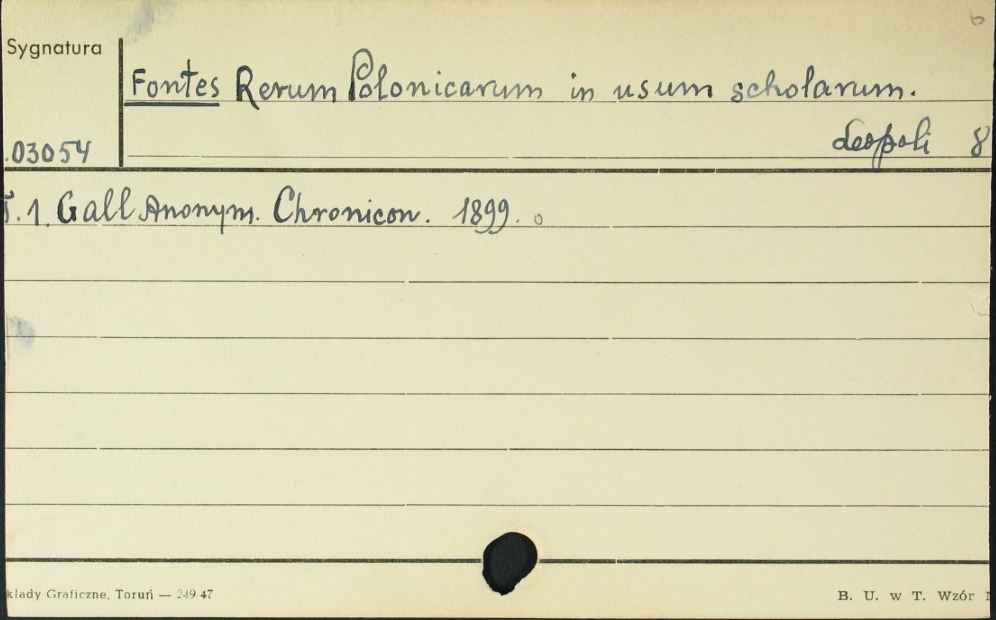 6
Sygnatura
Fontes Rerum Polonicarum in usum scholarum.
.03054
Leopoli 8
T. 1. Gall Anonym. Chronicon. 1899. o
kłady Graficzne, Toruń — 249 47
B. U. w T. Wzór